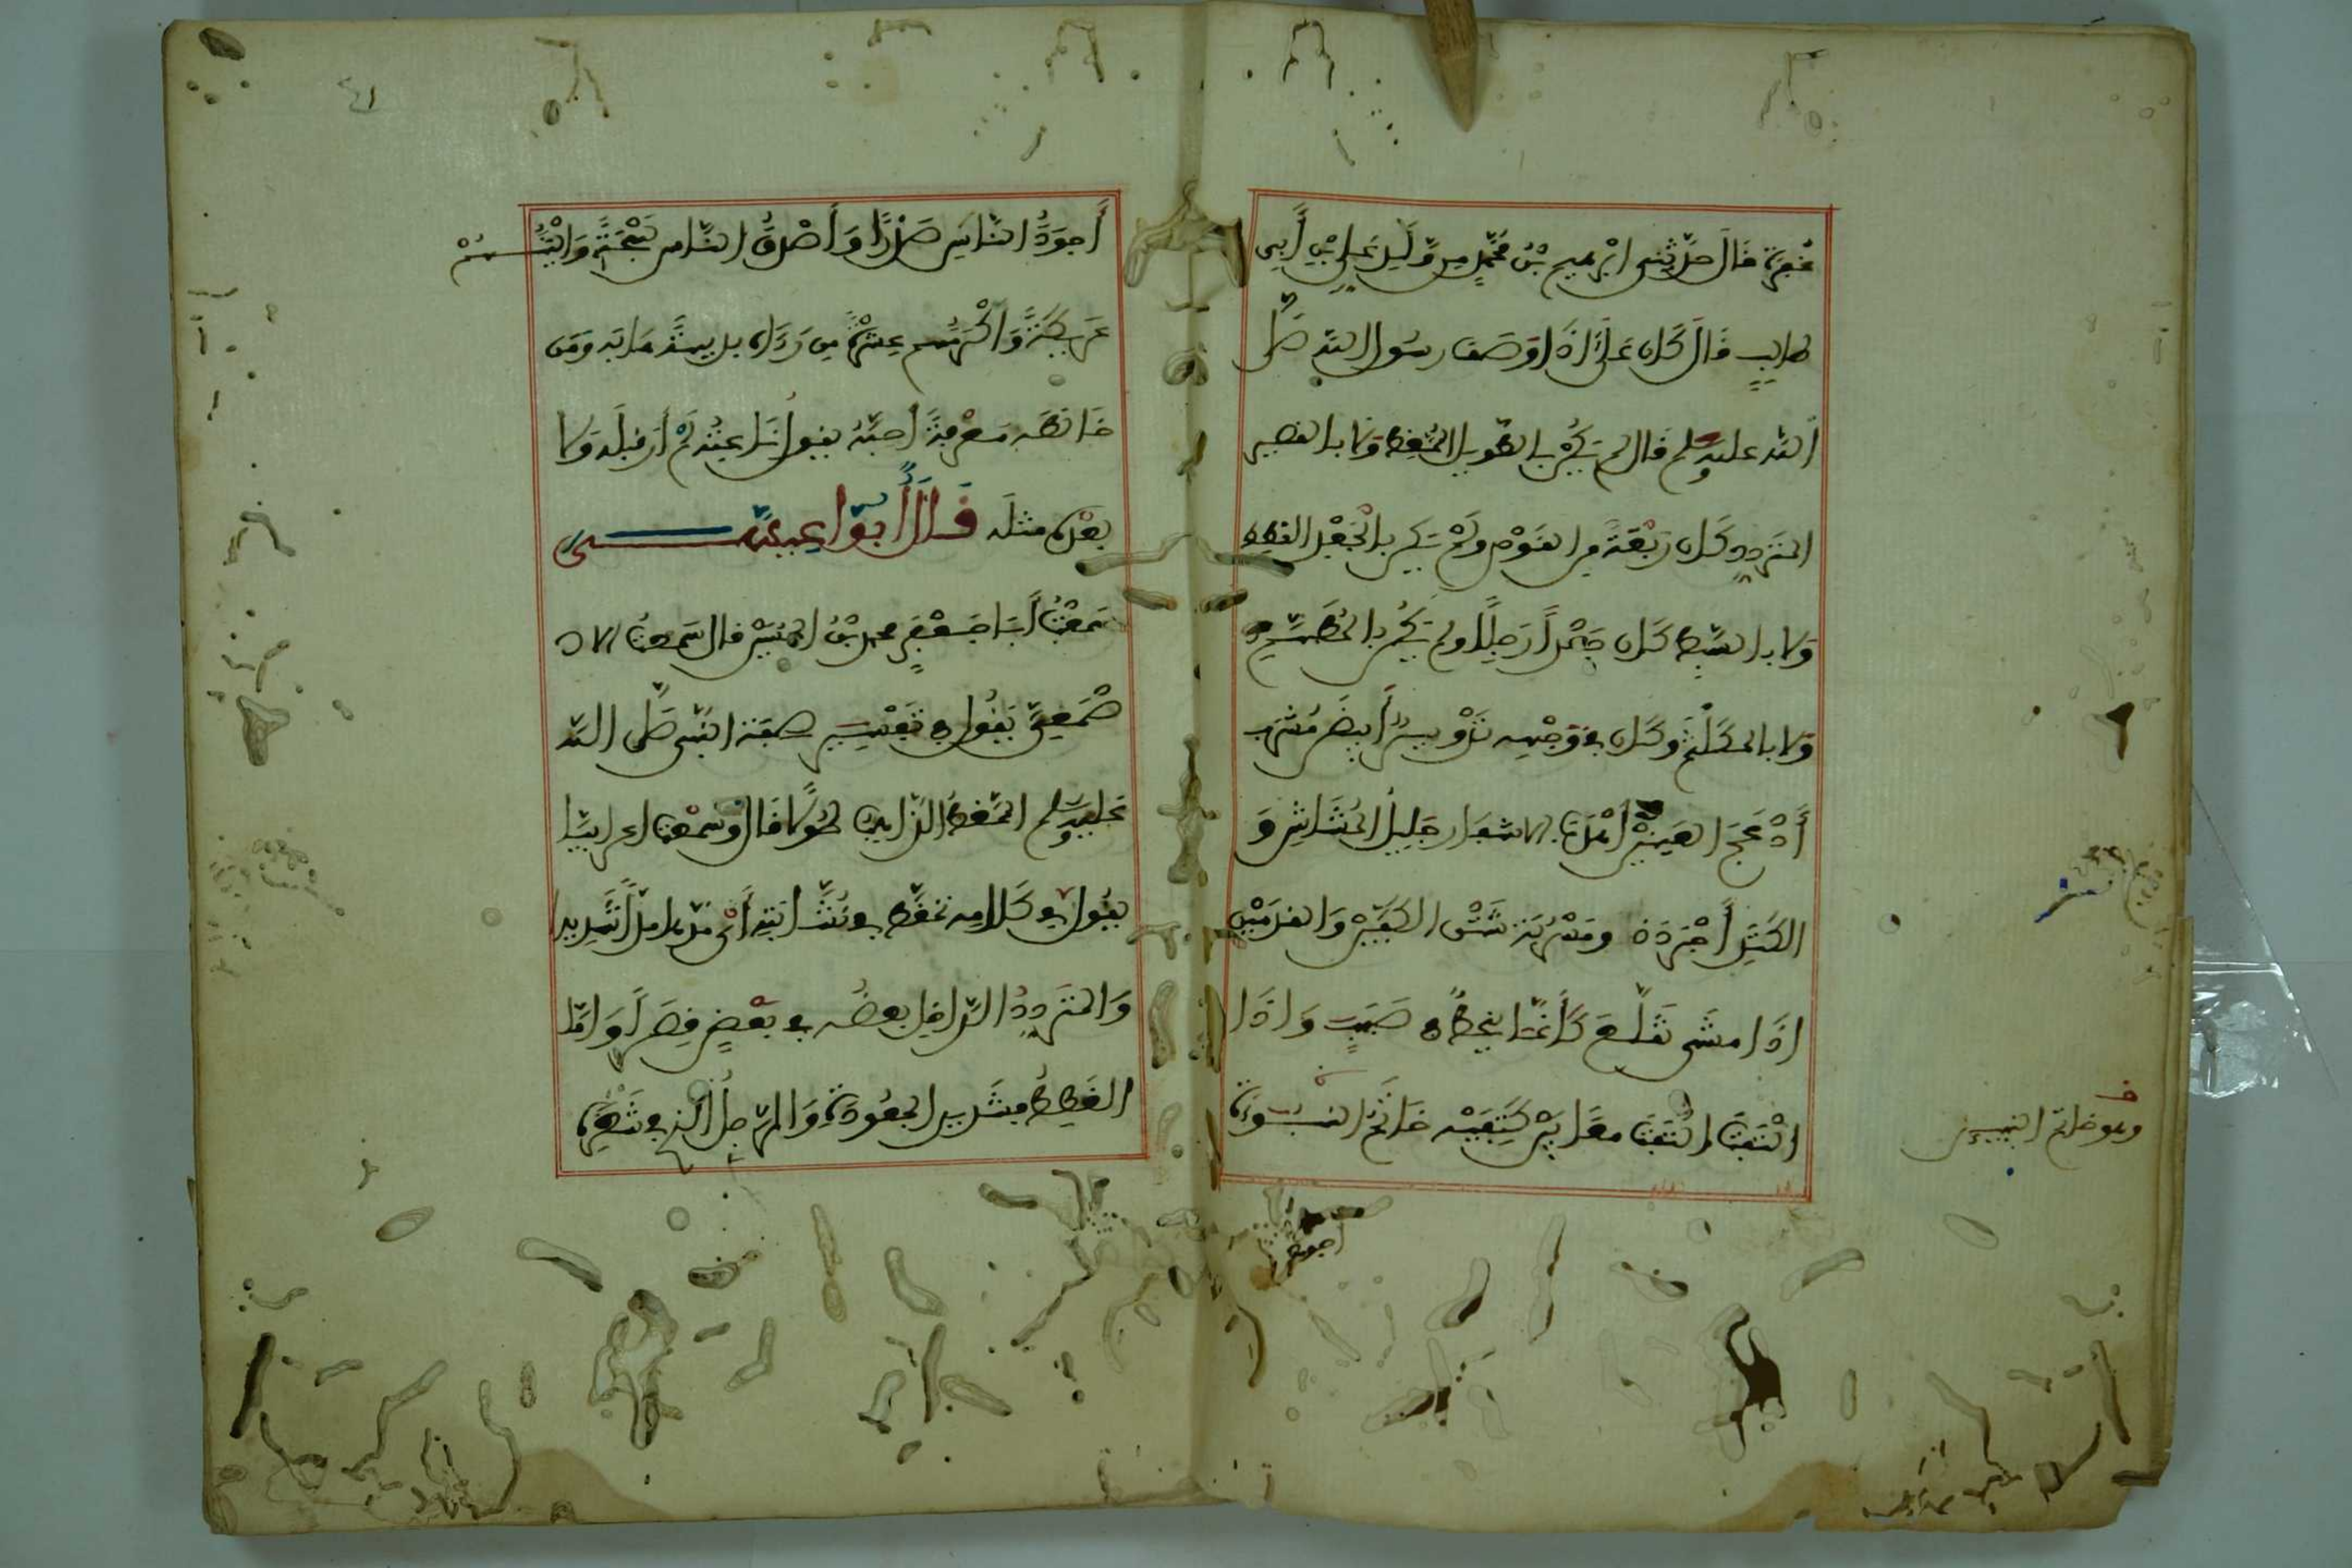 غُفْرَةَ قَالَ حَدَّثَنِي ابْرٰهيم بْنُ مُحَمَّدٍ مِن وَّلَدِ عَلِيِّ بْنِ أَبِي
طالبٍ قَالَ كَانَ عَلِيٌّ اذَا وَصَفَ رسُول اللّه صَلَّى
اللّه عليه وسلم قال لم يَكُنْ بالطّويل الْمُمَّغِطِ وَلا بالقصير
المتَردِّد وكَان رَبْعَةً من القَوْمِ ولَمْ يَكن بالْجَعْدِ القطِطِ
وَلا بالسَّبِطِ كَان جَعْدًا رَجِلًا ولم يَكُن بالمُطَهَّمِ
وَلا بالمكَلْثَم وكَان في وَجْهِه تَدْوِيرٌ أَبيَضُ مُشْرَب
أَدْعَجُ العَيْنَيْنِ أَهْدَبُ الاشْفَار جَلِيلُ الْمُشَاشِ وَ
الكَتِدِ أَجْرَدُ ذو مَسْرُبَة شَثْنُ الكَفَّيْنِ وَالقَدَمَيْنِ
اذَا مشَى تقَلَّعَ كَأَنَّمَا ينحَطُّ في صَبَبٍ وَاذَا
الْتَفَتَ الْتَفَتَ معًا بَيْنَ كَتِفَيْهِ خَاتَمُ النُّبُوءَة
وهو خاتم النبيئين
أجود
أَجوَدُ النّاسِ صَدْرًا وَأَصْدَقُ النَّاس لَهْجَةً وَأَلْيَنُهُمْ
عَرِيكَةً وَأَكْرَمُهُم عِشْرَةً مَن رَءَاه بديهةً هَابَه وَمَن
خَالَطَه مَعْرِفَةً أحبَّهُ يقول نَاعِتُه لَمْ أَرَ قبلَه وَلا
بعْدَه مثلَه قَالَ أَبُو عِيسَى
سَمعْتُ أَبَا جَعْفَرٍ محمد بْنُ الحُسَيْن قال سَمعتُ الا
صْمَعِيَّ يَقُول في تَفْسِيرِ صفَة النّبي صَلَّى اللّه
عَليه وسلم المُمَّغِط الذّاهِبُ طُولًا قَال وَسَمعْت اعرابيّا
يقُول في كَلامه تمغَّطَ في نُشَّابَتِه أَيْ مَدَّهَا مدًّا شَدِيدا
وَالمتَردِّدُ الدّاخِل بعضُه في بَعْضٍ قِصَرًا وَامّا
القَطَطُ فشَديد الجعُودَةِ وَالرَّجِلُ الذي في شَعْرِهِ